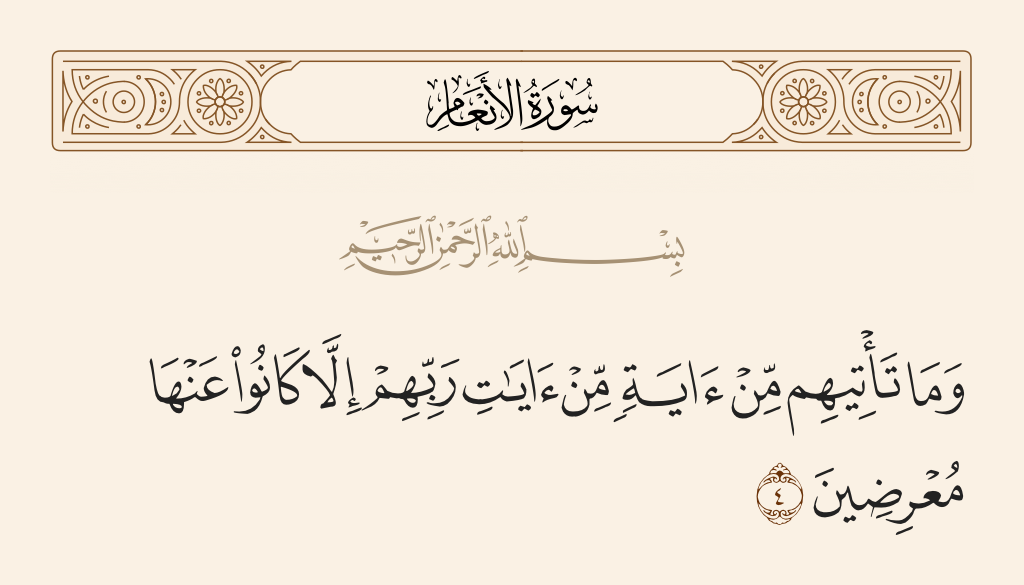 سُورَةُ الأَنْعَامِ
بِسْمِ ٱللَّهِ ٱلرَّحْمَٰنِ ٱلرَّحِيمِ
وَمَا تَأْتِيهِم مِّنْ ءَايَةٍ مِّنْ ءَايَٰتِ رَبِّهِمْ إِلَّا كَانُوا۟ عَنْهَا
مُعْرِضِينَ ٤